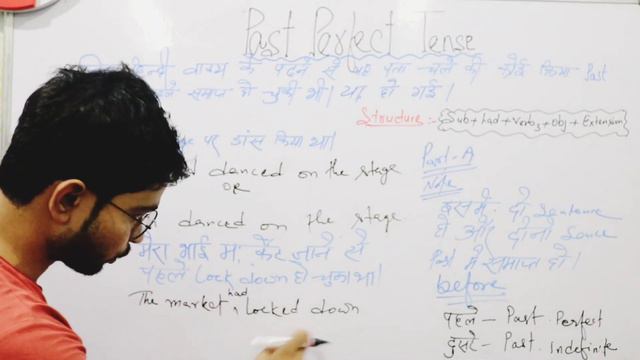 Past Perfect Tense
वाक्य के पढ़ने से यह पता चले की कोई क्रिया Past
समाप्त हो चुकी थी। या हो गई।
Structure :- {Sub + had + verb3 + Obj + Extension}
पर डांस किया था।
danced on the stage
OR
danced on the stage
Part-A
Note
इसमें दो Sentence
हो और दोनों
Past में समाप्त हो।
before
मेरा भाई जाने से
पहले Lock down हो चुका था।
The market had locked down
पहले - Past Perfect
दुसरे - Past Indefinite